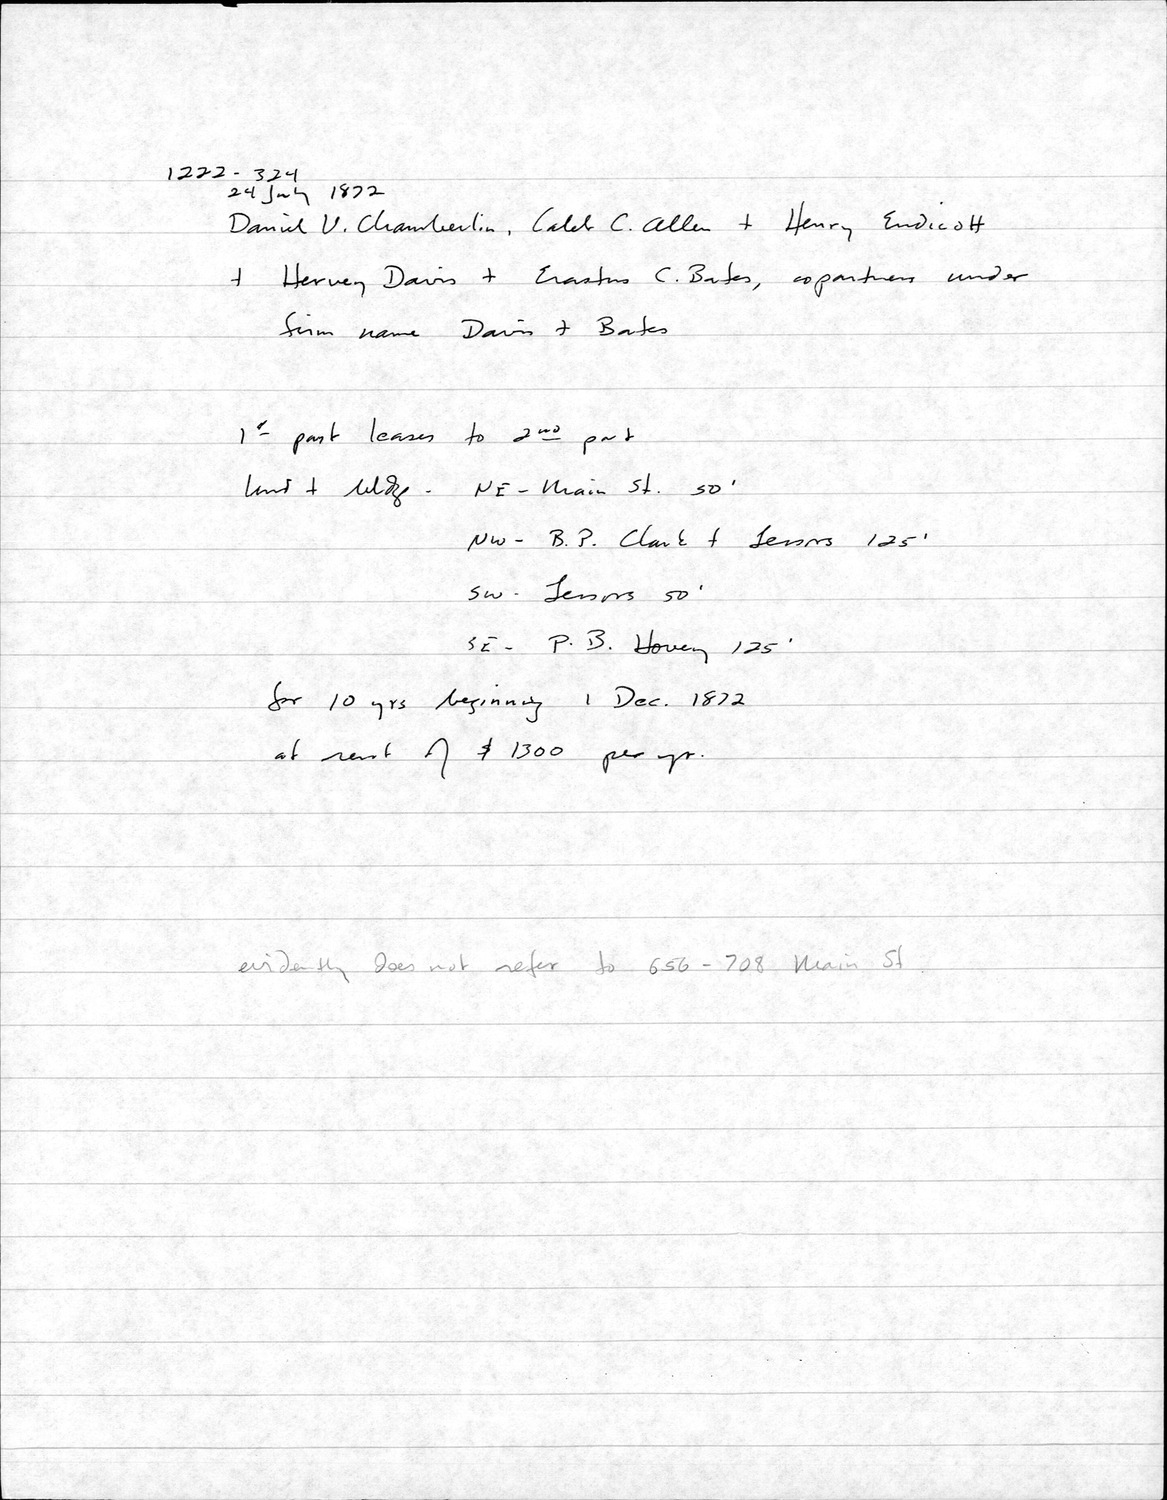 1222-324
24 July 1872
Daniel U. Chamberlin, Caleb C. Allen + Henry Endicott
+ Hervey Davis + Erastus C. Bates, copartners under
firm name Davis + Bates
1st part leases to 2nd part
land + bldg. NE - Main St. 50'
NW - B.P. Clark + Lessors 125'
SW - Lessors 50'
SE - P. B. Hovey 125'
for 10 yrs beginning 1 Dec. 1872
at rent of $1300 per yr.
evidently does not refer to 656-708 Main St.